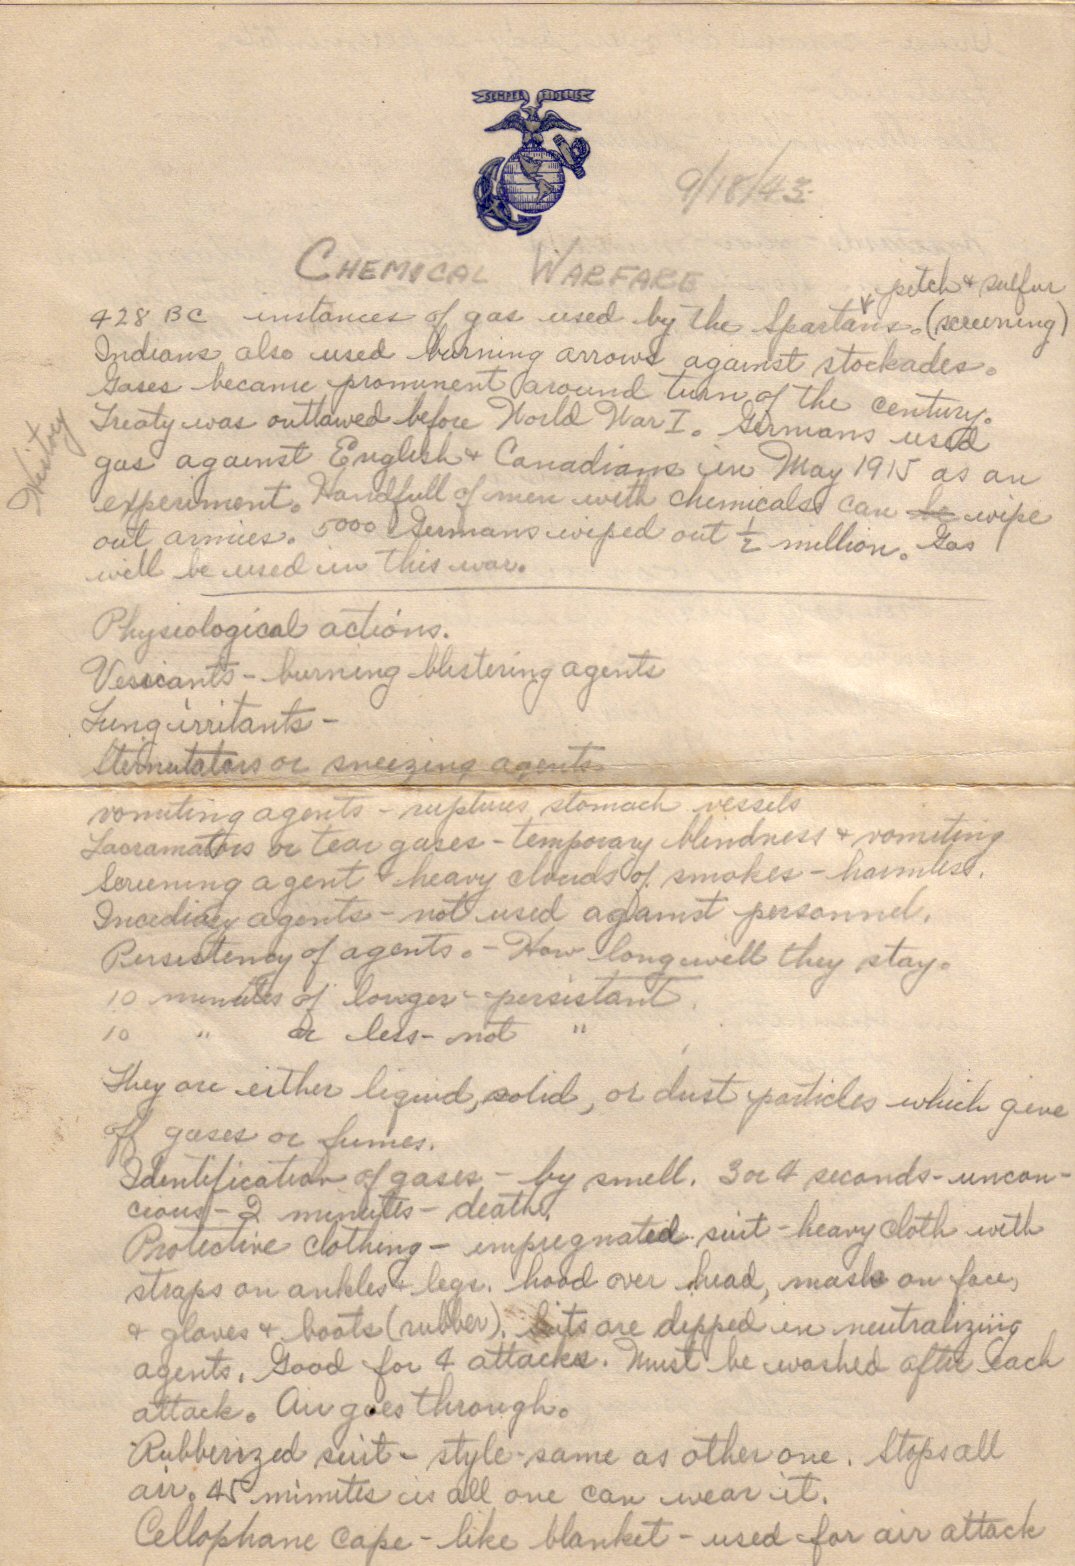 SEMPER FIDELIS
9/18/43.
CHEMICAL WARFARE
pitch & sulfur
428 BC instances of gas used by the Spartans. (screening)
Indians also used burning arrows against stockades.
Gases became prominent around turn of the century.
Treaty was outlawed before World War I. Germans used
gas against English & Canadians in May 1915 as an
experiment. Handfull of men with chemicals can be wipe
out armies. 5000 Germans wiped out ½ million. Gas
will be used in this war.
History
Physiological actions.
Vesicants - burning blistering agents
Lung irritants -
Sternutators or sneezing agents.
vomiting agents - ruptures stomach vessels
Lacramators or tear gases - temporary blindness & vomiting
Screening agent & heavy clouds of smokes - harmless.
Incediary agents - not used against personnel.
Persistency of agents. - How long will they stay.
10 minutes of longer - persistant.
10 " or less - not "
They are either liquid, solid, or dust particles which give
off gases or fumes.
Identification of gases - by smell. 3 or 4 seconds - uncon-
cious - 2 minutes - death.
Protective clothing - impregnated suit - heavy cloth with
straps on ankles & legs. hood over head, mask on face,
& gloves & boots (rubber). Suits are dipped in neutralizing
agents. Good for 4 attacks. Must be washed after each
attack. Air goes through.
Rubberized suit - style - same as other one. Stops all
air. 45 minutes is all one can wear it.
Cellophane cape - like blanket - used for air attack